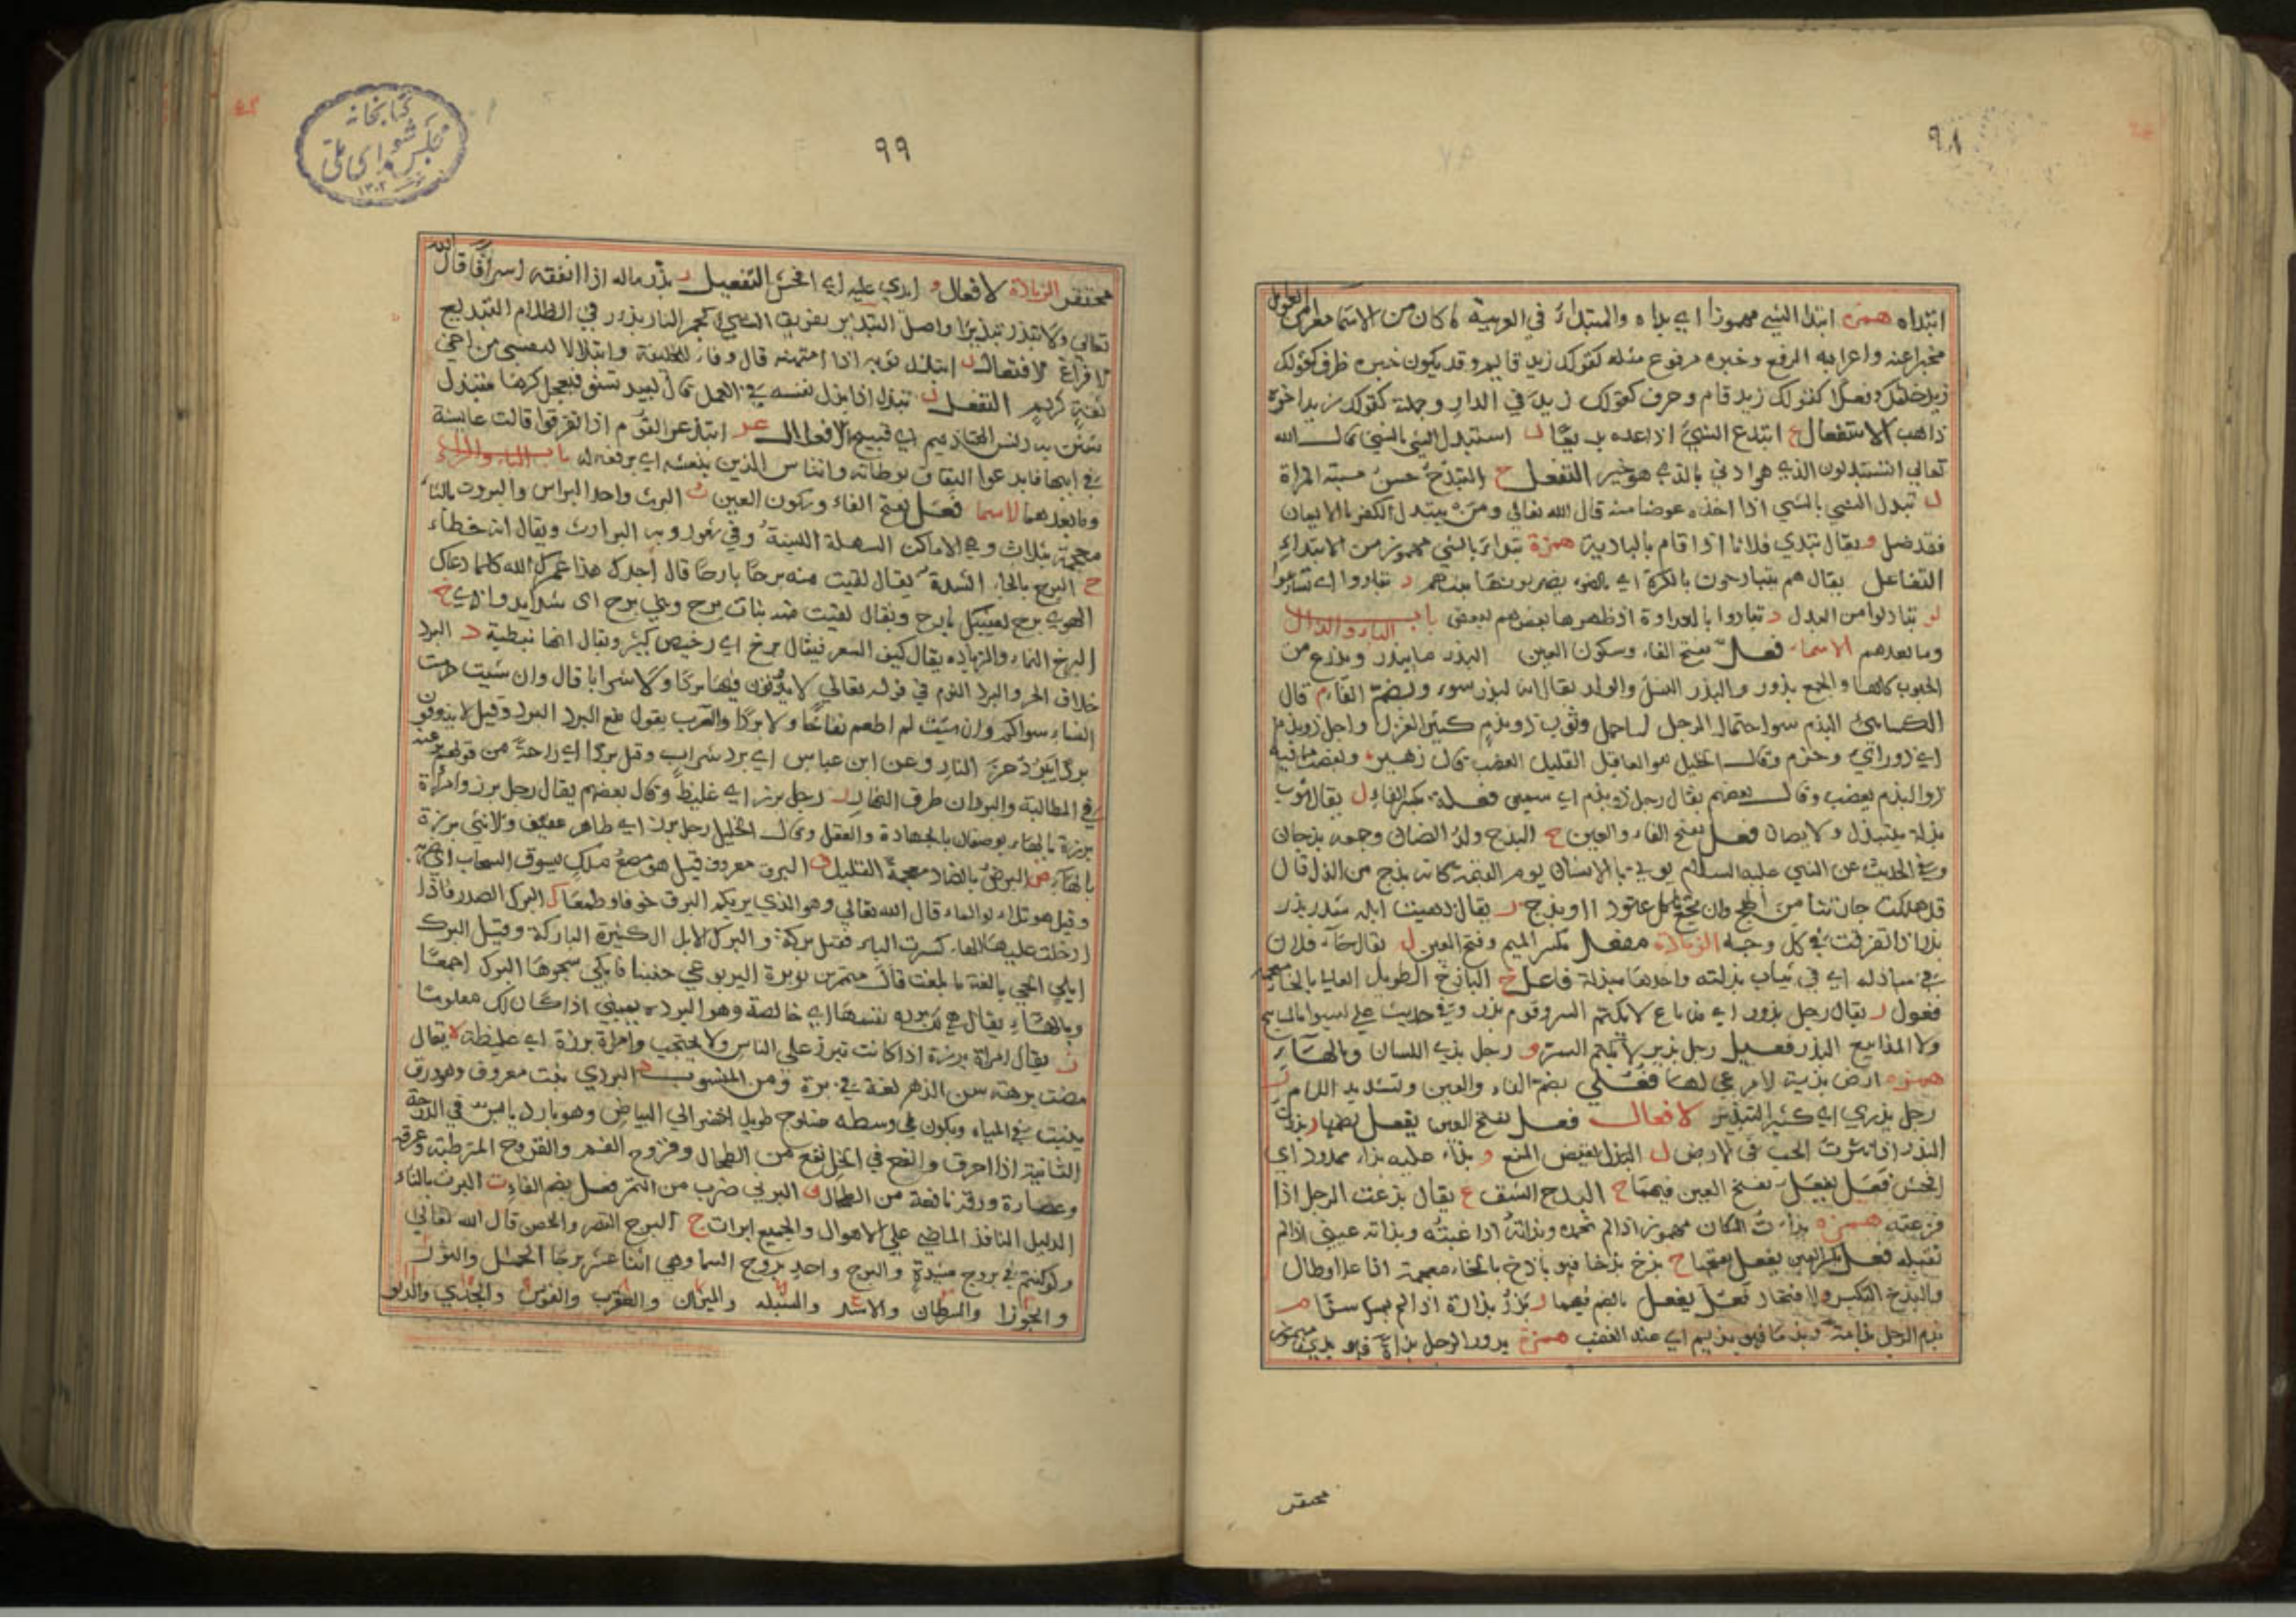 ٩٨
ابتداه همزة ابتدا الشي مهموزا اي بداه والمبتداء في العربية ما كان من الاسما معرى من العوامل
مخبرا عنه واعرابه الرفع وخبره مرفوع مثله كقولك زيد قايم وقد يكون خبره ظرف كقولك
زيد خلفك وفعلا كقولك زيد قام وحرف كقولك زيد في الدار وجملة كقولك زيد اخوه
ذاهب الاستفعال ع ابتدع الشي اذا عده بديعا ل استبدل الشي بالشي قال الله
تعالى اتستبدلون الذي هو ادنى بالذي هو خير التفعل ح التبدح حسن مشية المراة
ل تبدل الشي بالشي اذا اخذه عوضا منه قال الله تعالى ومن يتبدل الكفر بالايمان
فقد ضل و يقال تبدي فلانا اذا قام بالبادية همزة تبدا بالشي مهموز من الابتداء
التفاعل يقال هم يتبادحون بالكرة اي يضربون بها بينهم د تبادوا اي تسارعوا
ل تبادلوا من البدل و تبادوا بالعداوة اذ ظهر ها بعضهم لبعض باب الباء والذال
وما بعدهم الاسماء فعل بفتح الفاء وسكون العين البذر ما يبذر ويزرع من
الحبوب كلها والجمع بذور والبذر النسل والولد يقال ان لبذر سوء وبضم الفاء م قال
الكسائي البذم سوا احتمال الرجل لما حمل وثوب ذو بذم كثير الغزل واجل ذو بذم
اي ذو راي وحزم وقال الخليل هو العاقل القليل الغضب قال زهير وبعضها فيه
ذو البذم يغضب وقال بعضهم يقال رجل ذو بذم اي سمين فعلة بكسر الفاء ل يقال ثوب
بذلة يبتذل ولا يصان فعل بفتح الفاء والعين ج البذج ولد الضان وجمعه بذجان
وفي الحديث عن النبي عليه السلام يوتى بالانسان يوم القيمة كانه بذج من الذل قال
قد هلكت جارتنا من الهمج وان تجع تاكل عتودا او بذج ر يقال ذهبت ابله شذر بذر
بذر اذا تفرقت في كل وجه الزيادة مفعل بكسر الميم وفتح العين ل يقال جاء فلان
في مباذله اي في ثياب بذلته واحدها مبذلة فاعل خ الباذخ الطويل العالي بالخاء معجمة
فعول ر يقال رجل بذور اي مذياع لا يكتم السر وقوم بذر وفي حديث علي ليسوا بالمساييح
ولا المذاييع البذر فعيل رجل بذير لا يكتم السر و رجل بذي اللسان وبالهاء
همزة ارض بذية لا مرعى لها فعلي بضم الفاء والعين وتشديد اللام ر
رجل بذري اي كثير التبذير الافعال فعل بفتح العين يفعل بضمها ر بذرت
البذر اذا نثرت الحب في الارض ل البذل نقيض المنع و بذاء عليه بذاء ممدود اي
افحش فعل يفعل بفتح العين فيهما ح البذح الشق ع يقال بذعت الرجل اذا
فزعته همزة بذات المكان مهموز اذا لم تحمده وبذاته اذا عبته وبذاته عيني اذا لم
تقبله فعل بكسر العين يفعل بفتحها خ بذخ بذخا فهو باذخ بالخاء معجمة اذا علا وطال
والبذخ التكبر والافتخار فعل يفعل بالضم فيهما ر بذر بذارة اذا لم يمسك سرا م
بذم الرجل بذامة فهو بذيم اي عند الغضب همزة بذو الرجل بذاة فهو بذي مهموز
محتقر
كتابخانه
مجلس شورای ملی
١٣٠٢
٩٩
محتقر الزيادة الافعال و ابذي عليه اي افحش التفعيل ر بذر ماله اذا انفقه اسرافا قال الله
تعالى ولا تبذر تبذيرا واصل التبذير تفريق الشي كجمر النار بذور في الظلام التبذيع
الافزاع الافتعال ل ابتذل ثوبه اذا امتهنه قال وفاء للخليفة وابتذالا لنفسي من اخي
ثقة كريم التفعل ل تبذل اذا بذل نفسه في العمل قال لبيد
بدنس المخاذيم اي قبيح الافعال عر ابذعر القوم اذا تفرقوا قالت عايشة
في ابيها فابذعر النفاق بوطاته وانتاش الدين بنعشه اي برفعه له باب الباء والراء
وما بعدهما الاسما فعل بفتح الفاء وسكون العين ث البرث واحد البراث والبروث بالثاء
معجمة بثلاث وهي الاماكن السهلة اللينة وفي شعر روبه البوارث ويقال انه خطاء
ح البرح بالحاء الشدة يقال لقيت منه برحا بارحا قال اجدك هذا عمرك الله كلما دعاك
الهوى برح لعينيك بارح ويقال لقيت منه بنات برح وبني برح اي شدايد واذى خ
البرخ النماء والزيادة يقال كيف السعر فيقال برخ اي رخيص كثير ويقال انها نبطية د البرد
خلاف الحر والبرد النوم في قوله تعالى لا يذوقون فيها بردا ولا شرابا قال وان شيت حرمت
النساء سواكم وان شيت لم اطعم نقاخا ولا بردا والعرب يقول منع البرد البرد وقيل لا يذوقون
بردا يبرد حر النار وعن ابن عباس اي برد شراب وقيل بردا اي راحة من قولهم برد عنه
في المطالبة والبردان طرف النهار ز رجل برز اي غليظ وقال بعضهم يقال رجل برز وامراة
برزة بالهاء يوصفان بالجهارة والعقل وقال الخليل رجل برز اي طاهر عفيف والانثى برزة
بالهاء ض البرض بالضاد معجمة القليل ق البرق معروف قيل هو مصع ملك يسوق السحاب اي ضربه
وقيل هو تلالو الماء قال الله تعالى وهو الذي يريكم البرق خوفا وطمعا ك البرك الصدر فاذا
ادخلت عليه الهاء كسرت الباء فقيل بركة والبرك الابل الكثيرة الباركة وقيل البرك
ابل الحي بالغة ما بلغت قال متمم بن نويرة اليربوعي حنينا فابكى شجوها البرك اجمعا
وبالهاء يقال هي بردة نفسها اي خالصة وهو البردة يميني اذا كان لك معلوما
ز يقال امراة برزة اذا كانت تبرز على الناس ولا تحتجب وامراة برزة اي غليظة ه يقال
مضت برهة من الدهر لغة في برهة ومن المنسوب د البردي نبت معروف وله ورق
ينبت في المياه ويكون في وسطه طويل اخضر الى البياض وهو بارد يابس في الدرجة
الثانية اذا احرق وانقع في الخل نفع من الطحال وقروح الفم والقروح الرطبة وعرقه
وعصارة ورقه نافعة من الطحال البرني ضرب من التمر فعل بضم الفاء ت البرت بالتاء
الدليل النافذ الماضي على الاهوال والجميع ابرات ج البرج القصر والحصن قال الله تعالى
ولو كنتم في بروج مشيدة والبرج واحد بروج السما وهي اثنا عشر برجا الحمل والثور
والجوزا والسرطان والاسد والسنبله والميزان والعقرب والقوس والجدي والدلو